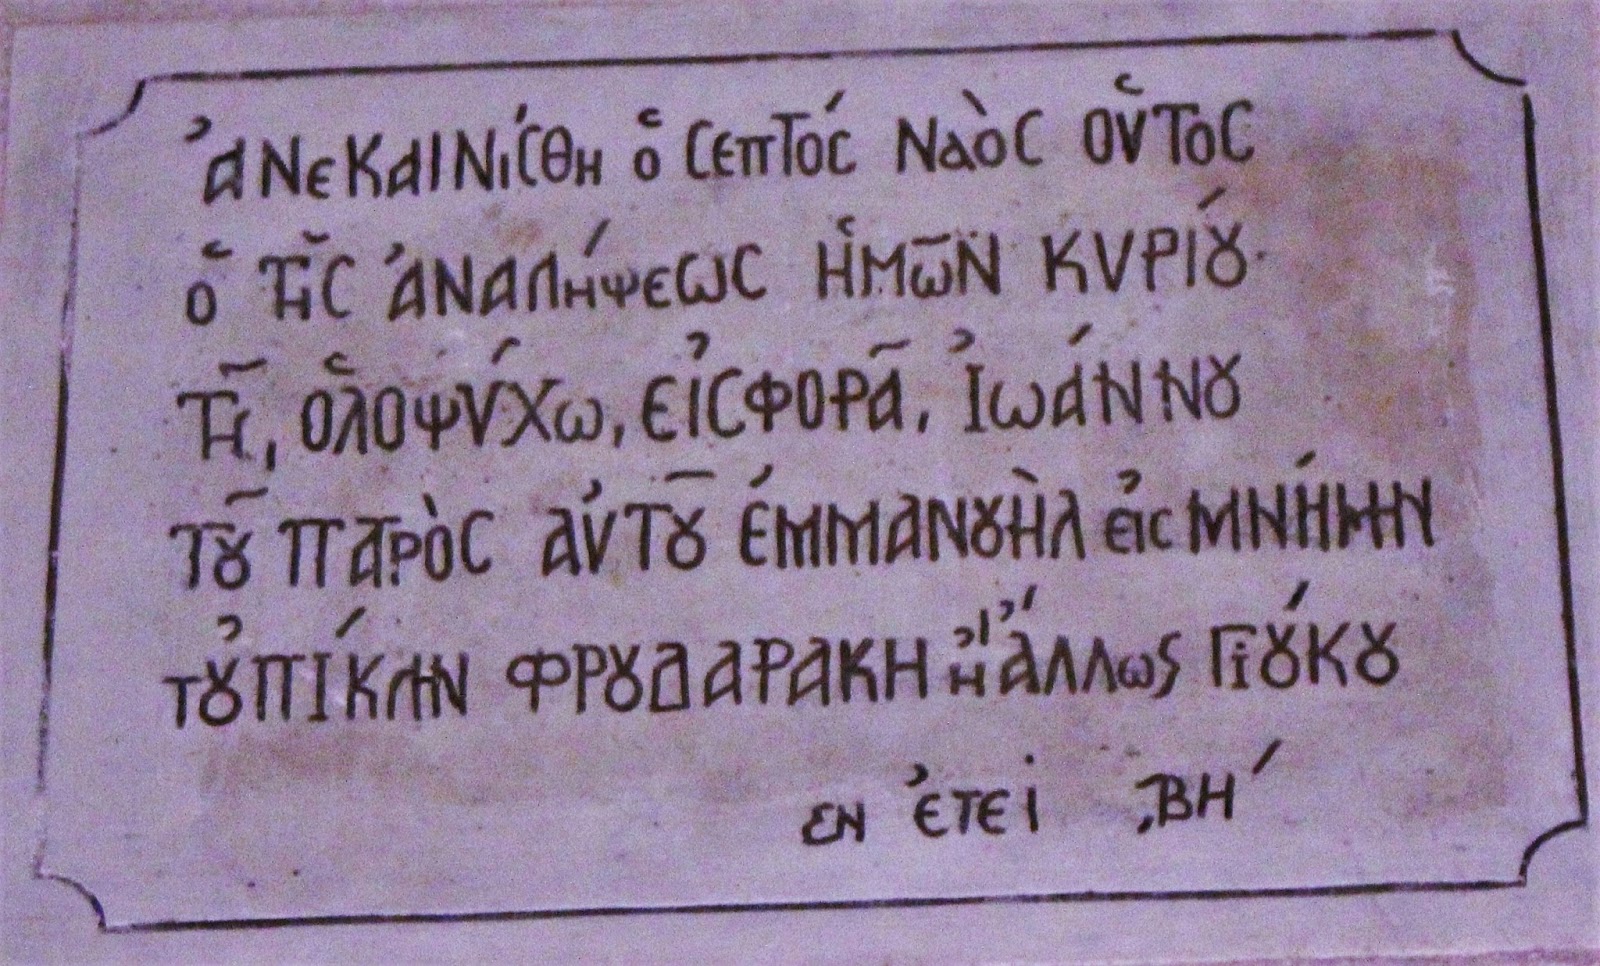 Ἀνεκαινίσθη ὁ σεπτός ναὸς οὗτος
ὁ τῆς Ἀναλήψεως ἡμῶν Κυρίου.
τῇ, ὁλοψύχω, εἰσφορᾶ, Ἰωάννου
τοῦ πατρὸς αὐτοῦ Ἐμμανουὴλ εἰς μνήμην
τοὐπίκλην Φρουδαράκη ἢ ἄλλως Γιούκου
ἐν ἔτει ͵ΒΗ΄